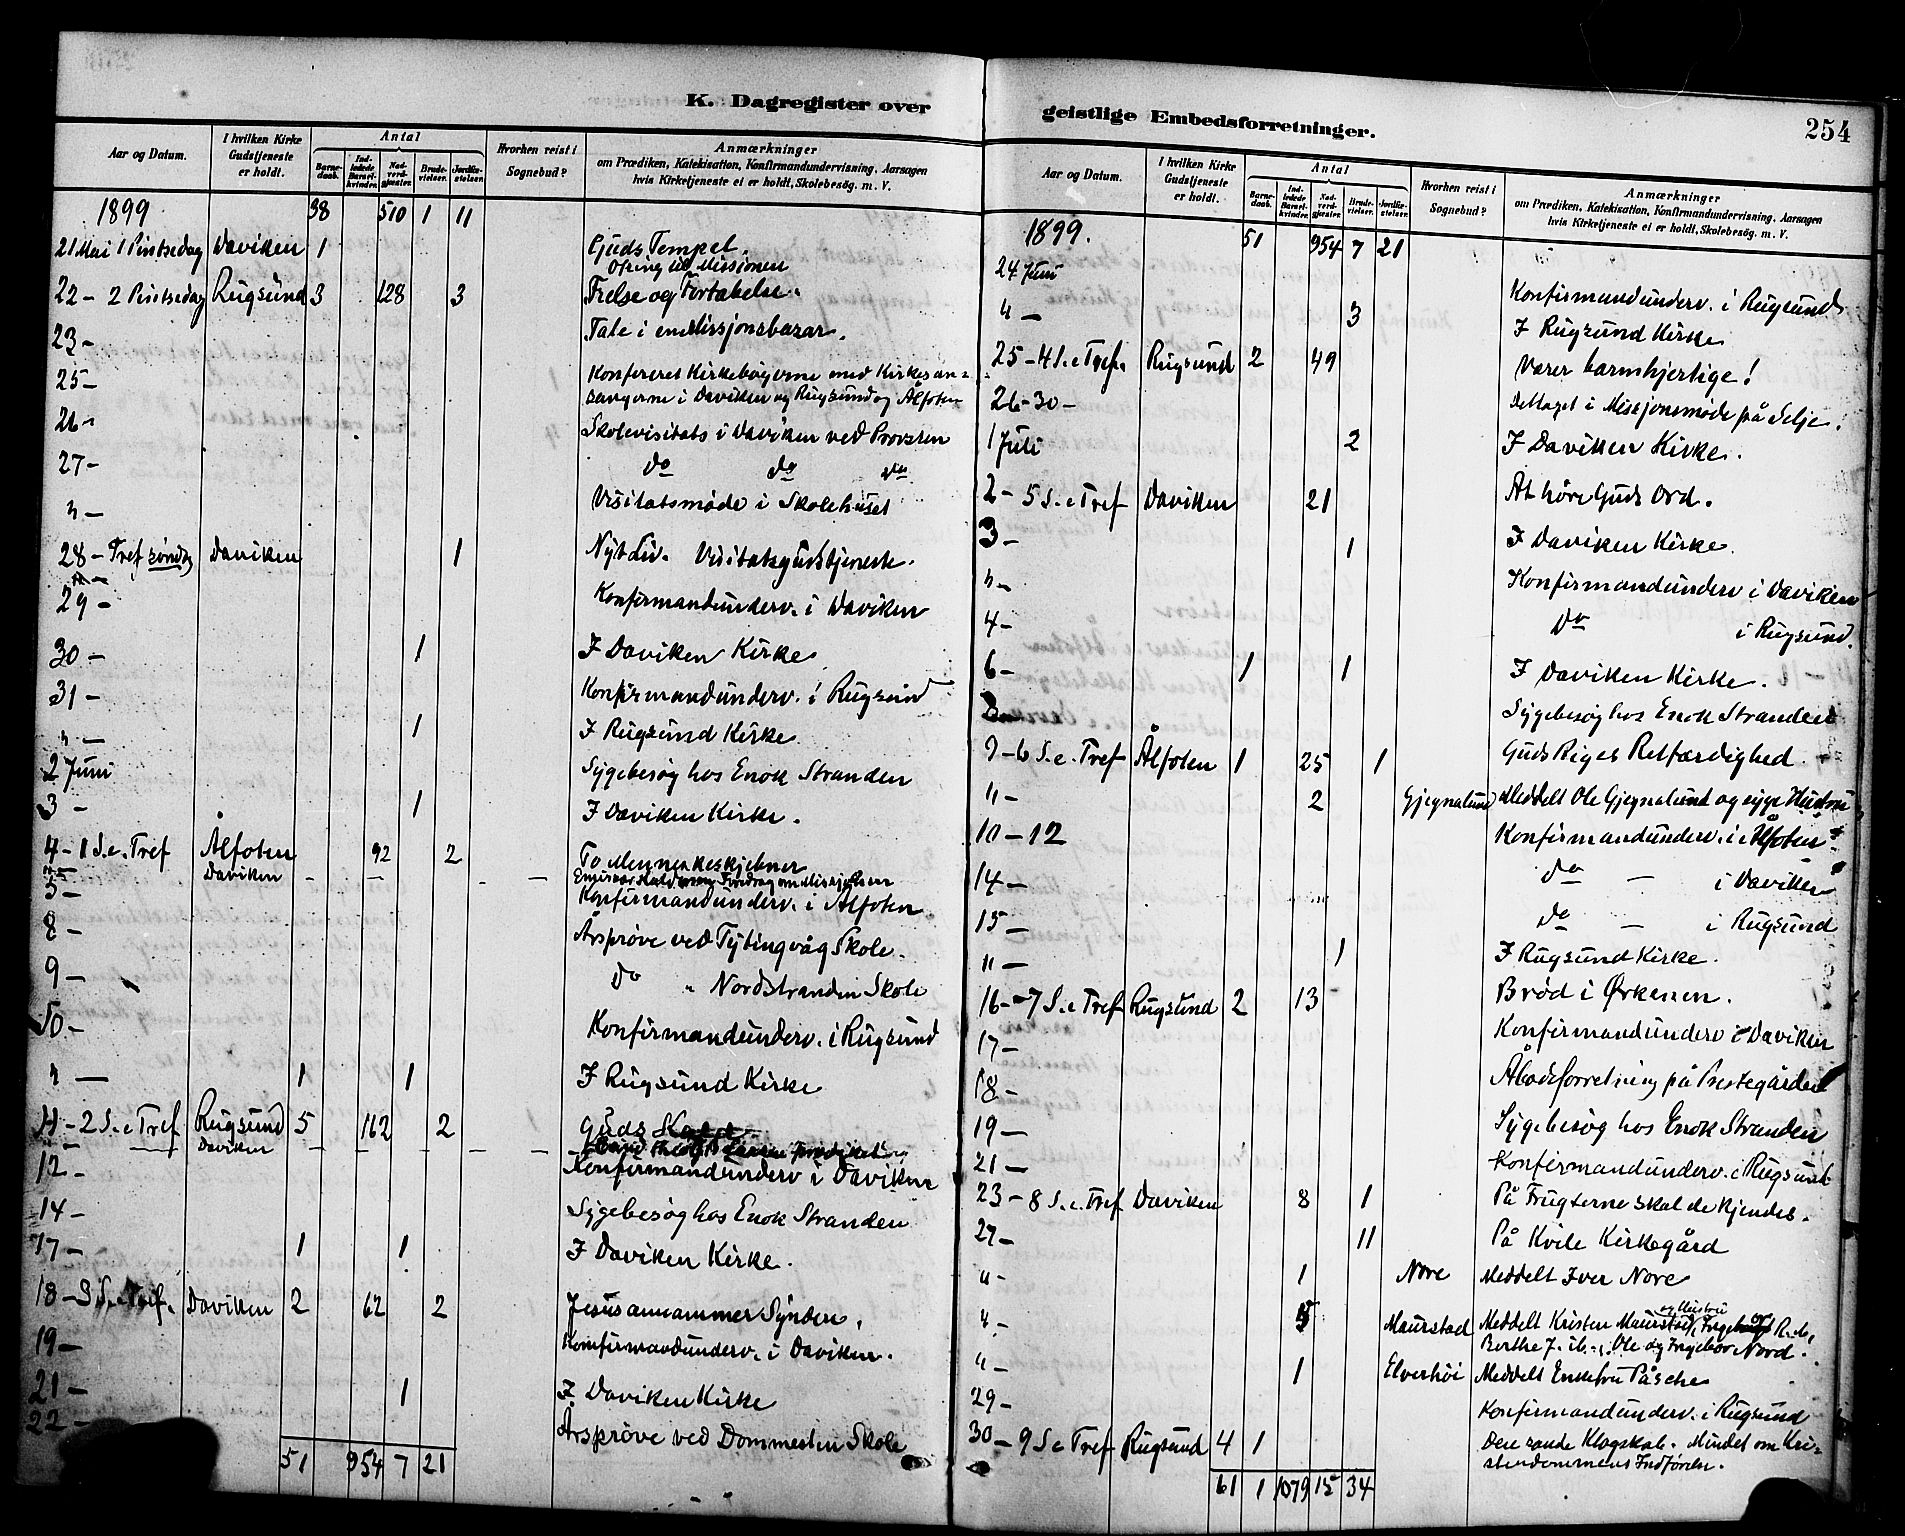 K. Dagregister over
Aar og Datum. I hvilken Kirke Gudstjeneste er holdt. Antal Barnedaab. Indledede Barselkvinder. Nadverdgjæster. Brudevielser. Jordfæstelser. Hvorhen reist i Sognebud? Anmærkninger om Prædiken, Katekisation, Konfirmandundervisning, Aarsagen hvis Kirketjeneste ei er holdt, Skolebesøg. m. V.
1899 38 510 1 11
21 Mai 1 Pintsedag Daviken 1 Guds Tempel.
Ofring til Missionen
22 - 2 Pintsedag Rugsund 3 128 3 Frelse og Fortabelse.
23 - Tale i en Missjonsbazar.
25 - Konfereret Kirkebøgerne med Kirkesan-
sangerne i Daviken og Rugsund og Ålfoten
26 - Skolevisitats i Daviken ved Provsten
27 - do do do
" - Visitatsmøde i Skolehuset
28 - Tref søndag Daviken 1 Nyt Liv. Visitatsgudstjeneste.
29 - Konfirmandunderv. i Daviken
30 - 1 I Daviken Kirke
31 - Konfirmandunderv. i Rugsund
" - 1 I Rugsund Kirke
2 Juni Sygebesøg hos Enok Stranden
3 - 1 I Daviken Kirke.
4 - 1 S. e. Tref Ålfoten 92 2 To Menneskeskjebner
Daviken - - - - Foredrag om Missjonen
5 - Konfirmandunderv. i Ålfoten
8 - Årsprøve ved Tytingvåg Skole.
9 - do " Nordstranden Skole
10 - Konfirmandunderv. i Rugsund
" - 1 1 I Rugsund Kirke
11 - 2 S. e Tref Rugsund 5 162 2 Guds
" - Daviken - - - - - -
12 - Konfirmandunderv i Daviken
14 - Sygebesøg hos Enok Stranden
17 - 1 1 I Daviken Kirke.
18 - 3 S. e Tref. Daviken 2 62 2 Jesus annammer Syndere.
19 - Konfirmandunderv. i Daviken.
21 - 1 I Daviken Kirke
22 - Årsprøve ved Dommesten Skole
51 954 7 21
geistlige Embedsforretninger. 254
Aar og Datum. I hvilken Kirke Gudstjeneste er holdt. Antal Barnedaab. Indledede Barselkvinder. Nadverdgjæster. Brudevielser. Jordfæstelser. Hvorhen reist i Sognebud? Anmærkninger om Prædiken, Katekisation, Konfirmandundervisning, Aarsagen hvis Kirketjeneste ei er holdt, Skolebesøg. m. V.
1899. 51 954 7 21
24 Juni Konfirmandunderv. i Rugsund
" - 3 I Rugsund Kirke
25 - 4 S. e Tref. Rugsund 2 49 Værer barmhjertige!
26-30 - Deltaget i Missjonsmøde på Selje.
1 Juli 2 I Daviken Kirke.
2 - 5 S. e Tref Daviken 21 At høre Guds Ord.
3 - 1 I Daviken Kirke.
" - Konfirmandunderv i Daviken
4 - do i Rugsund.
6 - 1 1 I Daviken Kirke.
8 Sygebesøg hos Enok Stranden
9 - 6 S. e. Tref Ålfoten 1 25 1 Guds Riges Retfærdighed
" - 2 Gjegnalund Meddelt Ole Gjegnalund og syge Hustru
10 - 12 Konfirmandunderv. i Ålfoten
14 - do - i Daviken
15 - do - i Rugsund
" - 1 I Rugsund Kirke.
16 - 7 S. e Tref Rugsund 2 13 Brød i Ørkenen.
17 - Konfirmandunderv i Daviken
18 - Åbodsforretning på Prestegården
19 - Sygebesøg hos Enok Stranden
21 - Konfirmandunderv. i Rugsund
23 - 8 S. e. Tref Daviken 8 1 På Frugterne skal de kjendes.
27 - 11 På Kvile Kirkegård
" - 1 Nore Meddelt Iver Nore
og Hustru
" - Maurstad Meddelt Kristen Maurstad,
Berthe J. ib. Ole og Ingebor Nord.
" - 1 Elverhøi Meddelt Enkefru Påsche
29 - Konfirmandunderv. i Rugsund
30 - 9 S e Tref Rugsund 4 1 Den sande Klogskab. Mindet om Kri-
stendommens Indførelse.
61 1 1079 15 34